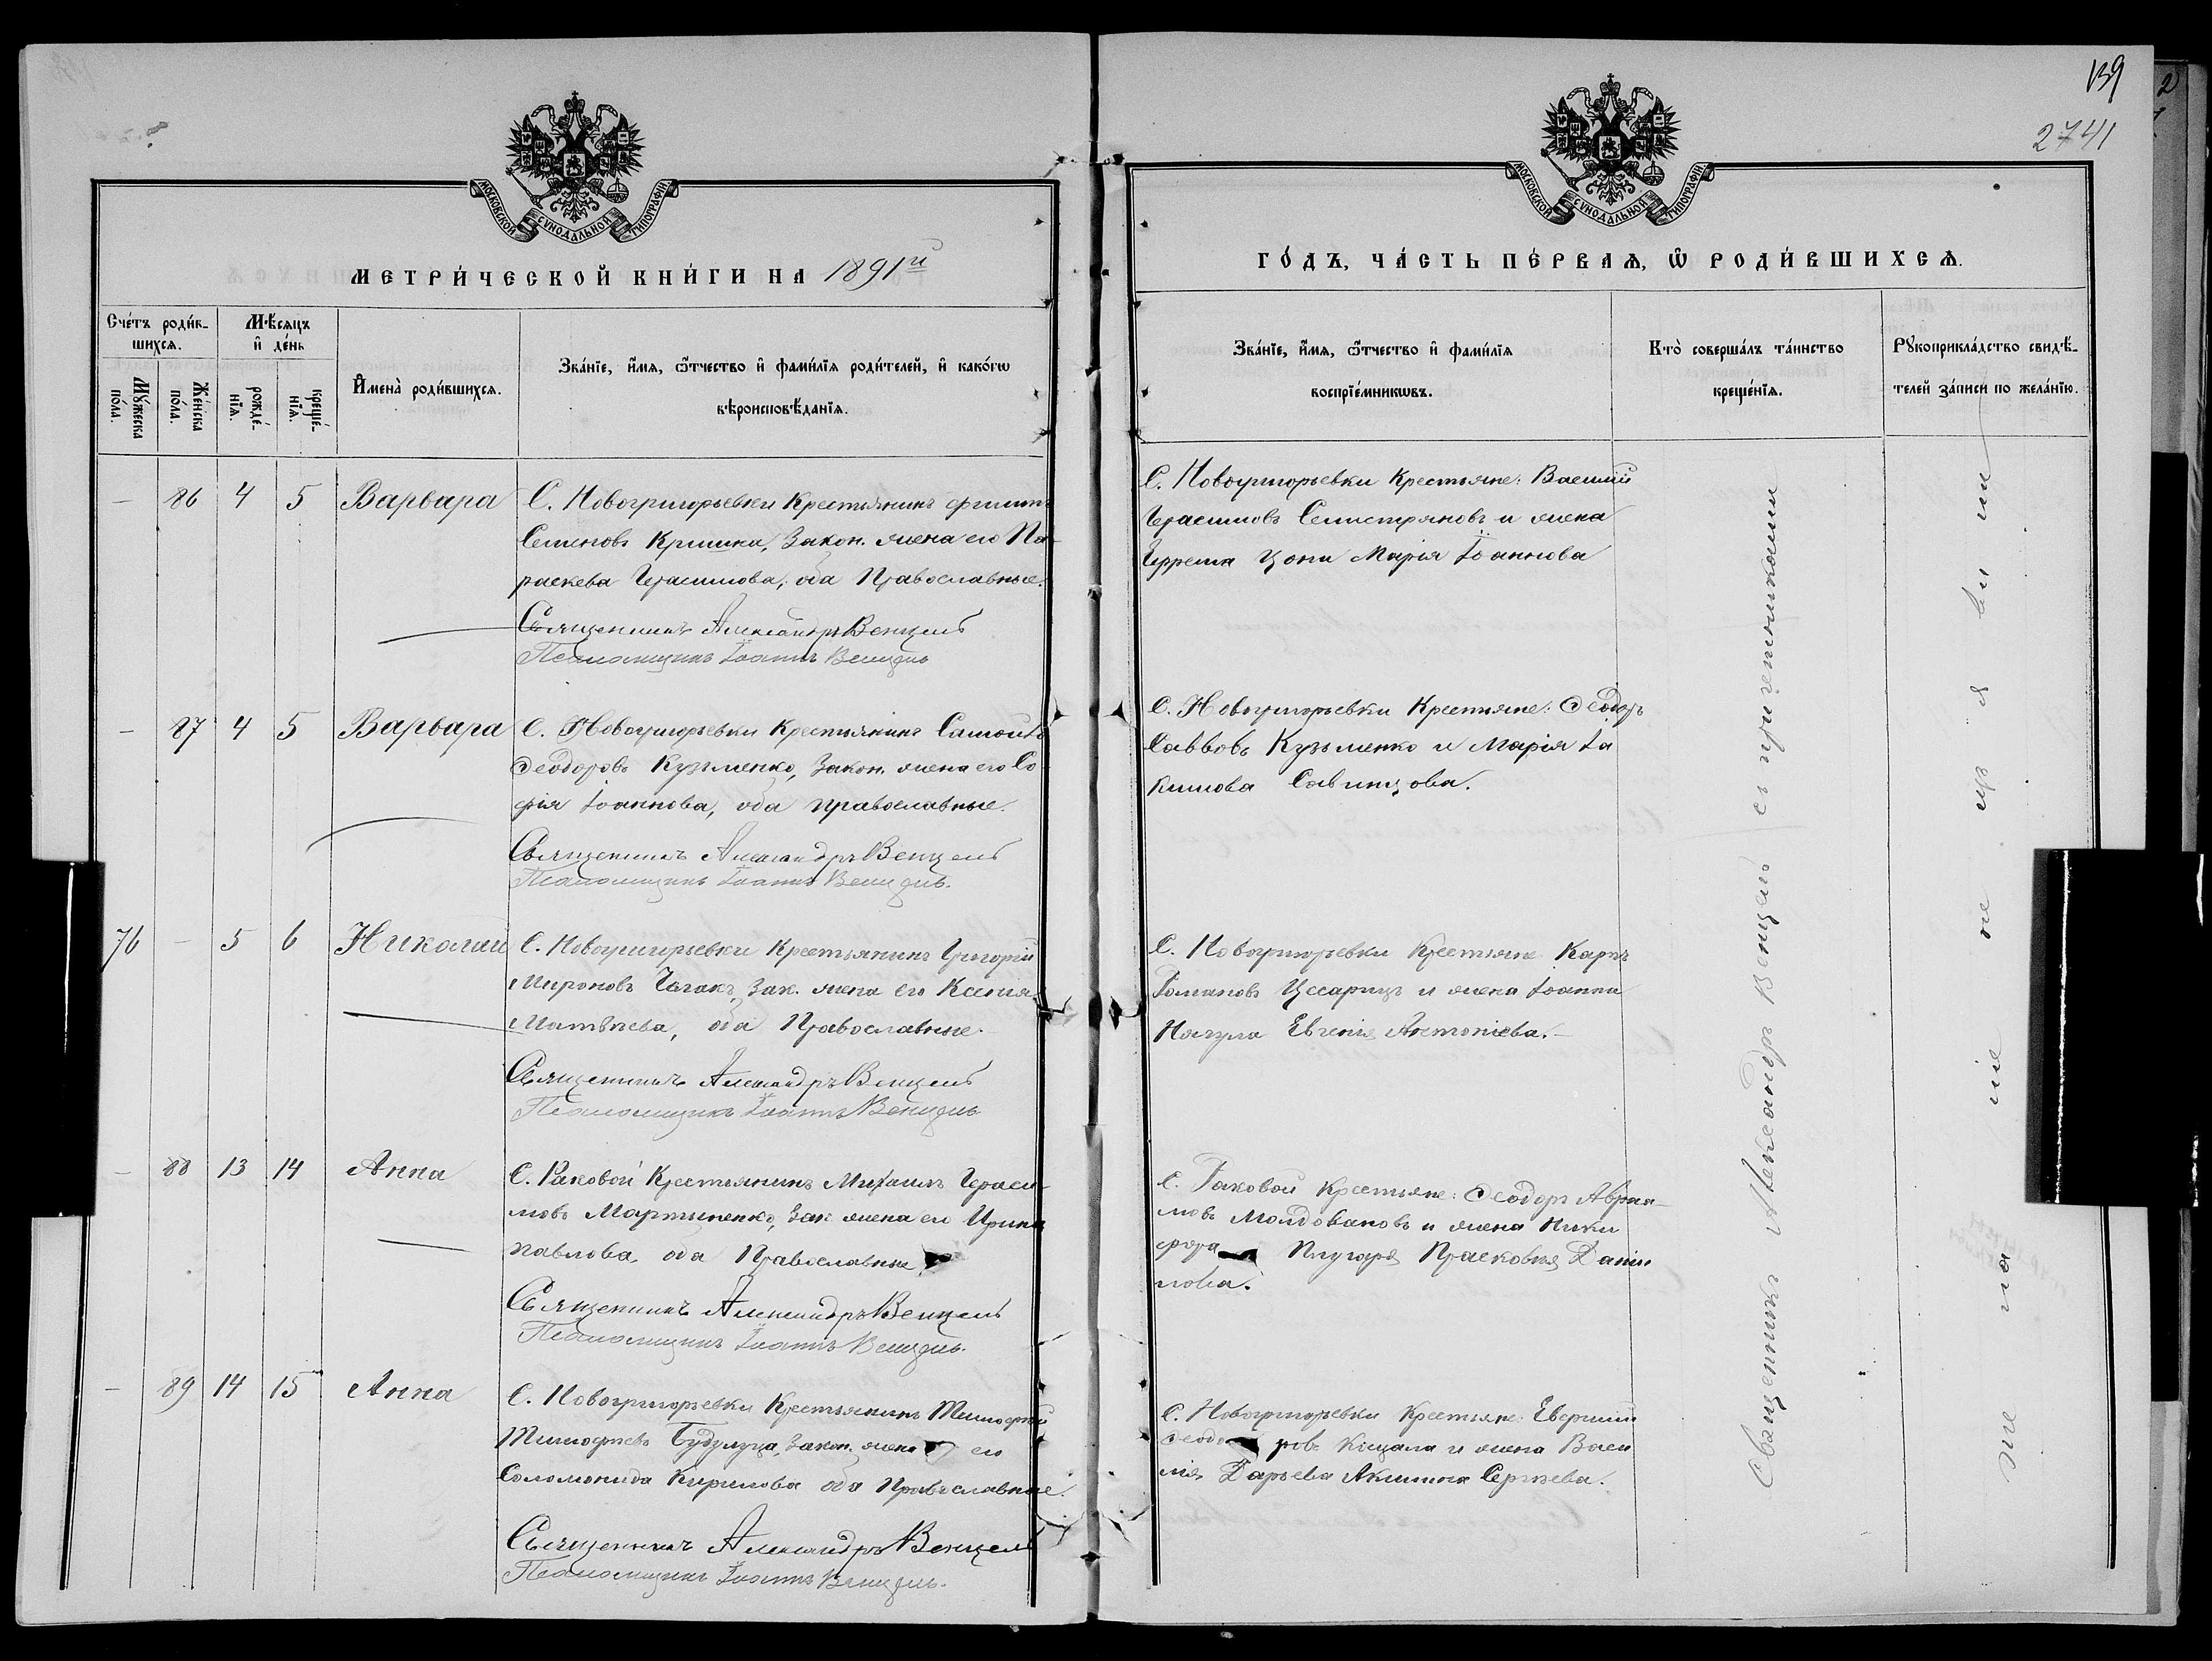 139
2741
МОСКОВСКОЙ СѴНОДАЛЬНОЙ ТИПОГРАФІИ
МОСКОВСКОЙ СѴНОДАЛЬНОЙ ТИПОГРАФІИ
МЕТРИ́ЧЕСКОЙ КНИ́ГИ НА 1891й
ГО́ДЪ, ЧА́СТЬ ПЕ́РВАѦ, Ѡ РОДИ́ВШИХСѦ.
Сче́тъ роди́в-
шихсѧ.
Мѣ́сяцъ
и де́нь
Му́жеска по́ла.
Же́нска по́ла.
рожде́-
нїѧ.
креще́-
нїѧ.
Имена̀ роди́вшихсѧ.
Зва́нїе, и́мѧ, ѻ́тчество и фами́лїѧ роди́телей, и како́гѡ
вѣроисповѣ́данїѧ.
Зва́нїе, и́мѧ, ѻ́тчество и фами́лїѧ
воспрїе́мникѡвъ.
Кто̀ соверша́лъ та́инство
креще́нїѧ.
Рꙋкоприкла́дство свидѣ́-
телей за́писи по жела́нїю.
— 86 4 5 Варвара
С. Новогригорьевки Крестьянинъ Филипъ
Семеновъ Кришка, Закон. жена его Па
раскева Герасимова, оба Православные.
Священникъ Александръ Венцель
Псаломщикъ Іоаннъ Венцель
С. Новогригорьевки Крестьяне: Василій
Герасимовъ Семистряновъ и жена
Цона Марія Іоаннова
— 87 4 5 Варвара
С. Новогригорьевки Крестьянинъ Самоилъ
Ѳеодоровъ Кузьменко, Закон. жена его Со
фія Іоаннова, оба православные.
Священникъ Александръ Венцель
Псаломщикъ Іоаннъ Венцель.
С. Новогригорьевки Крестьяне: Ѳеодоръ
Саввовъ Кузьменко и Марія Іа
кимова Савинцова.
76 — 5 6 Николай
С. Новогригорьевки Крестьянинъ Григорій
Мироновъ Чагакъ, Зак. жена его Ксенія
Матѳѣева, оба Православные.
Священникъ Александръ Венцель
Псаломщикъ Іоаннъ Венцель
С. Новогригорьевки Крестьяне Карпъ
Романовъ Цесарицъ и жена Іоанна
Нягула Евгенія Антоніева.
— 88 13 14 Анна
С. Раковой Крестьянинъ Михаилъ Гераси
мовъ Мартыненко, Зак жена его Ирина
Павлова, оба Православные
Священникъ Александръ Венцель
Псаломщикъ Іоаннъ Венцель.
С. Раковой Крестьяне: Ѳеодоръ Авраа-
мовъ Молдовановъ и жена Ники
фора Плугаря Прасковія Даніи
лова.
— 89 14 15 Анна
С. Новогригорьевки Крестьянинъ Тимофей
Тимофѣевъ Будулуца, Закон. жена его
Соломонида Кирилова оба Православные.
Священникъ Александръ Венцель
Псаломщикъ Іоаннъ Венцель.
С. Новогригорьевки Крестьяне: Евфимій
Ѳеодоровъ Кицала и жена Васи
лія Дарьева Акилина Сергѣева.
Священникъ Александръ Венцель съ причетниками